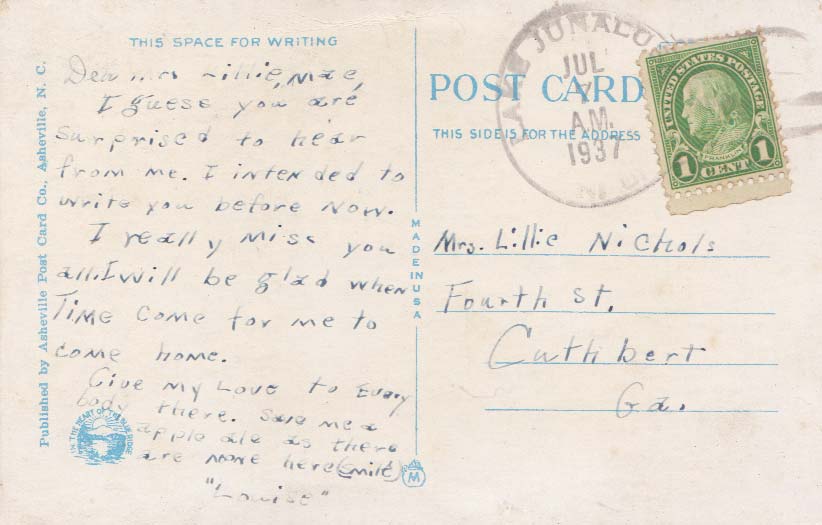 THIS SPACE FOR WRITING
Dear Mrs Lillie, Mae,
I guess you are
surprised to hear
from me. I intended to
write you before now.
I really miss you
all. I will be glad when
Time come for me to
come home.
Give my Love to Every
body there. Save me a
apple ale as there
are none here (smile)
"Louise"
Published by Asheville Post Card Co., Asheville, N. C.
IN THE HEART OF THE BLUE RIDGE
MADE IN USA
M
POST CARD
THIS SIDE IS FOR THE ADDRESS
LAKE JUNALU
JUL
7
AM.
1937
N.C.
UNITED STATES POSTAGE
FRANKLIN
1 CENT 1
Mrs. Lillie Nichols
Fourth St.
Cuthbert
Ga.